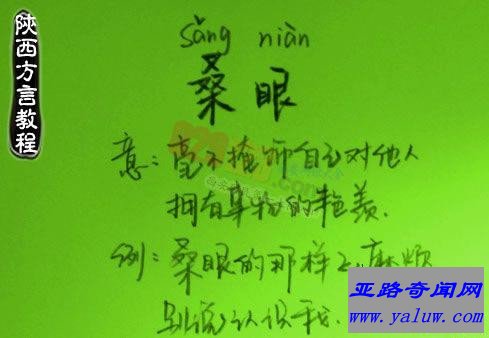 陕西方言教程
sǎng niàn
桑眼
意:毫不掩饰自己对他人
拥有事物的艳羡.
例:桑眼的那样子,麻烦
别说认识我.
亚路奇闻网
www.yaluw.com